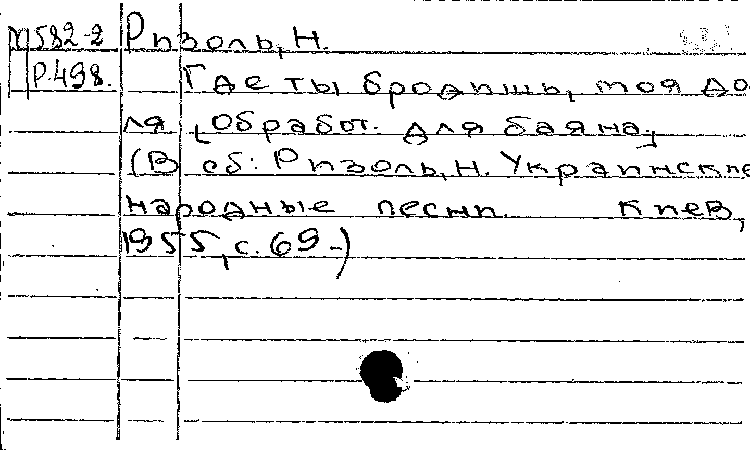 М582-2 Ризоль, Н.
Р.498. Где ты бродишь, моя до
ля [Обработ. для баяна]
(В сб: Ризоль, Н. Украинские
народные песни. Киев,
1955, с. 69-)